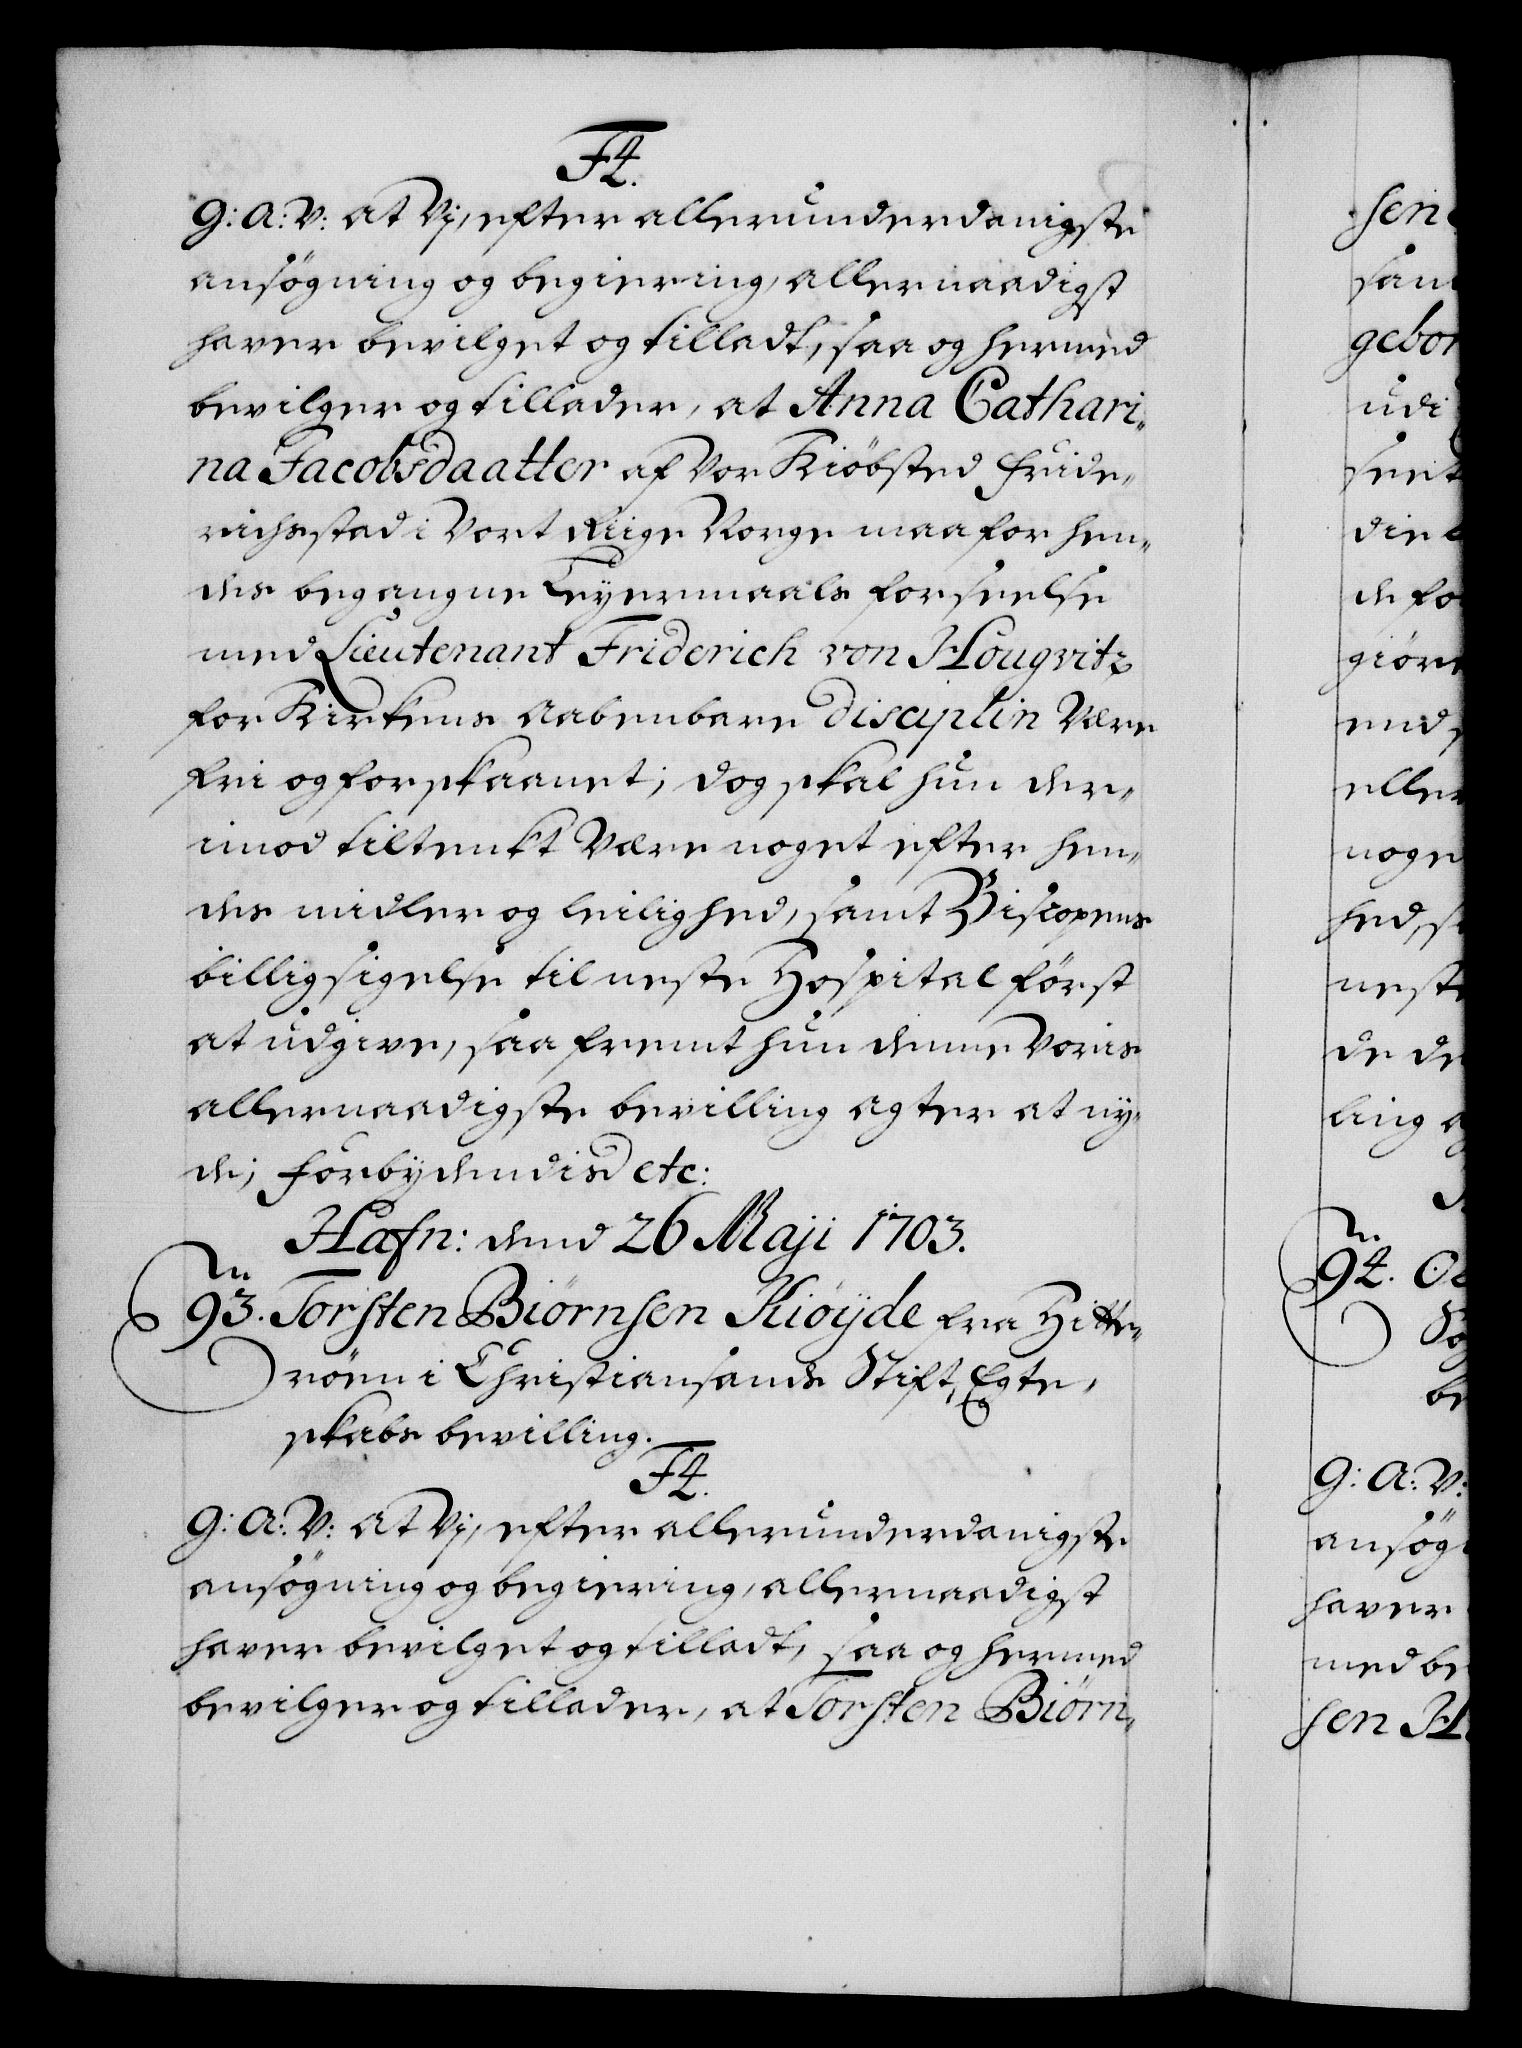 F4.
G: A: V: at Vj, efter allerunderdanigste
ansögning og begiering, allernaadigst
haver bevilget og tilladt, saa og hermed
bevilger og tillader, at Anna Cathari„
na Jacobsdaatter af Vor Kiöbsted Fride„
richsstad i Vort Rige Norge maa for hen„
des begangne Leyermaals forseelse
med Lieutenant Friderich von Hougvitz
for Kirkens Aabenbare disciplin Være
fri og forskaanet; dog skal hun der„
imod tiltenkt Være noget efter hen„
des midler og leilighed, samt Biscopens
billigsigelse til neste Hospital först
at udgive, saa fremt hun denne Voris
allernaadigste bevilling agter at ny„
de; Forbydendis etc:
Hafn: dend 26 Maji 1703.
N
93. Torsten Biörnsen Kiöyde fra Hitte„
röen i Christiansands Stift, Egte„
skabs bevilling.
F4.
G: A: V: At Vj, efter allerunderdanigste
ansögning og begiering, allernaadigst
haver bevilget og tilladt, saa og hermed
bevilger og tillader, at Torsten Biörn„
sen
san
gebor
udi
seet
die
de for
giöre
ends
eller
noge
hed, s
neste
de de
ling a
N
94. Ol
Sog
be
G: A: V:
ansög
haver
med be
sen H